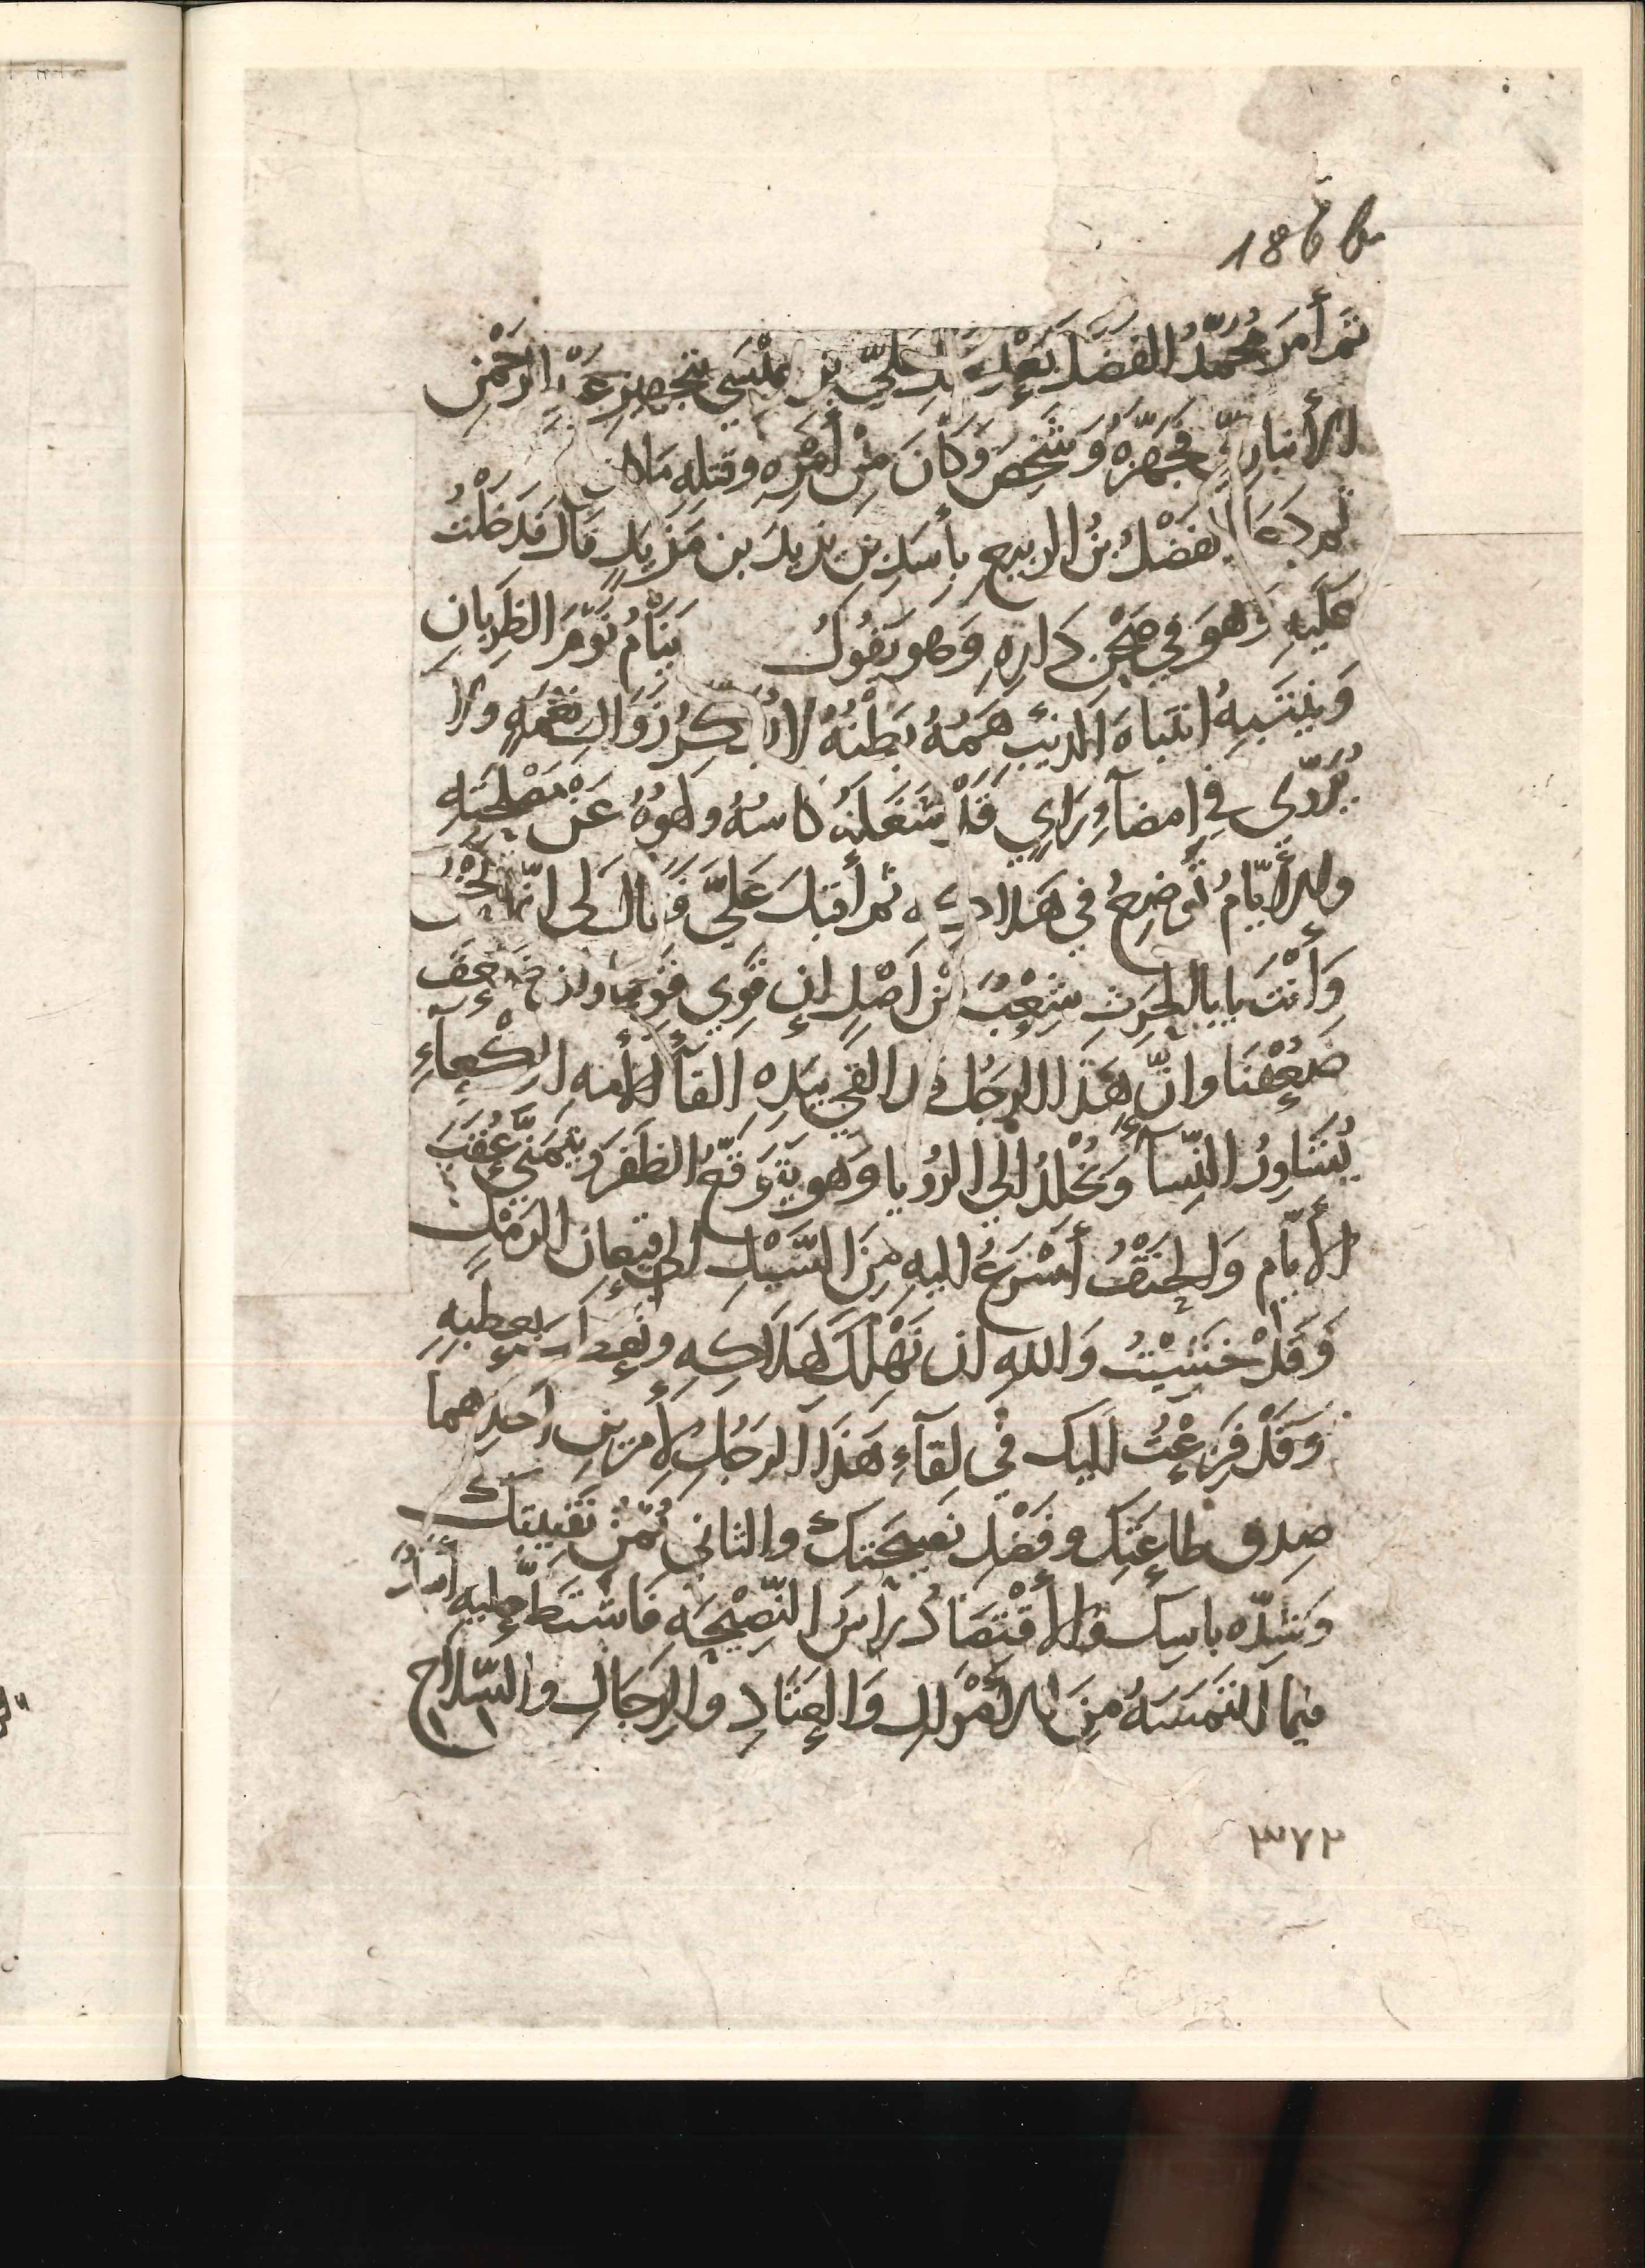 186b
ثم أمر محمدُ الفضلَ بعد علي بن عيسى بتجهيز عبد الرحمن
الأنباريّ فجهّزهُ وَشَخَصَ وَكَانَ مِنْ أَمْرِهِ وقتلِهِ مَا كان
ثم دعَا الفَضْلُ بنُ الربيع بأسدِ بن يزيدَ بن مَزْيدٍ قال فدَخَلْتُ
عليهِ وَهوَ في صَحْنِ دَارِهِ وَهو يَقُولُ يَنَامُ نَوْمَ الظَرِبانِ
وَيَنْتَبِهُ انتباهَ الذئبِ هَمّهُ بَطْنُهُ لا يُفكرُ زَوَالَ نعْمَةٍ ولا
يُرَوّى في إمضآءِ رَاىٍ قَدْ شَغَلَهُ كاسُهُ ولهوُهُ عَنْ مَصْلحَتِهِ
والأيّامُ تُوضِعُ في هَلاكه ثم أقبلَ عَليَّ وَقالَ لى انّما نَحْنُ
وَأَنْتَ يا بالحرثِ شِعْبٌ مِنْ اَصْلٍ إن قَوِيَ قَوِينا وإن ضَعُفَ
ضَعُفْنَا وانَّ هَذَا الرجُلَ قد القي بيَدِهِ القآءَ الأمه الوكْعآءِ
يُشَاوِرُ النّسآءَ وَيُخْلِدُ إلى الرُؤيا وَهو يَتَوَقّعُ الظفَرَ ويَتَمَنّى عُقَبَ
الأيّامِ وَالحَتْفُ أسْرَعُ اليهِ مِنَ السّيْلِ الى قيعان الرمْلِ
وَقَدْ خَشيْتُ وَاللهِ ان نَهْلَكَ لهَلاكِهِ ونَعطَبَ بعطبِهِ
وَقَدْ فَزِعْتُ اليك في لِقآءِ هَذَا الرجُلِ لأمرين احدهما
صِدق طاعَتِك وفَضْل نصيحَتك والثاني يُمْنُ نَقيبتِكَ
وَشِدّه باسِك وَالاقْتِصَادُ رأسُ النّصِيْحَةِ فاشتَطّ عليه
فيما التمَسَهُ مِنَ الأمْوَالِ وَالعَتَادِ والرِجَالِ والسّلاح
٣٧٢